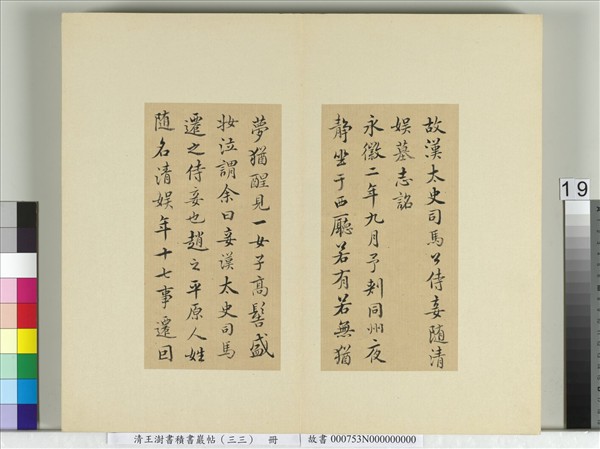 故漢太史司馬公侍妾随清
娱墓志銘
永徽二年九月予刺同州夜
静坐于西廳若有若無猶
夢猶醒見一女子高髻盛
妆泣謂余曰妾漢太史司馬
遷之侍妾也趙之平原人姓
随名清娱年十七事遷因
19
清王澍書積書巖帖（三三） 冊
故書 000753N000000000